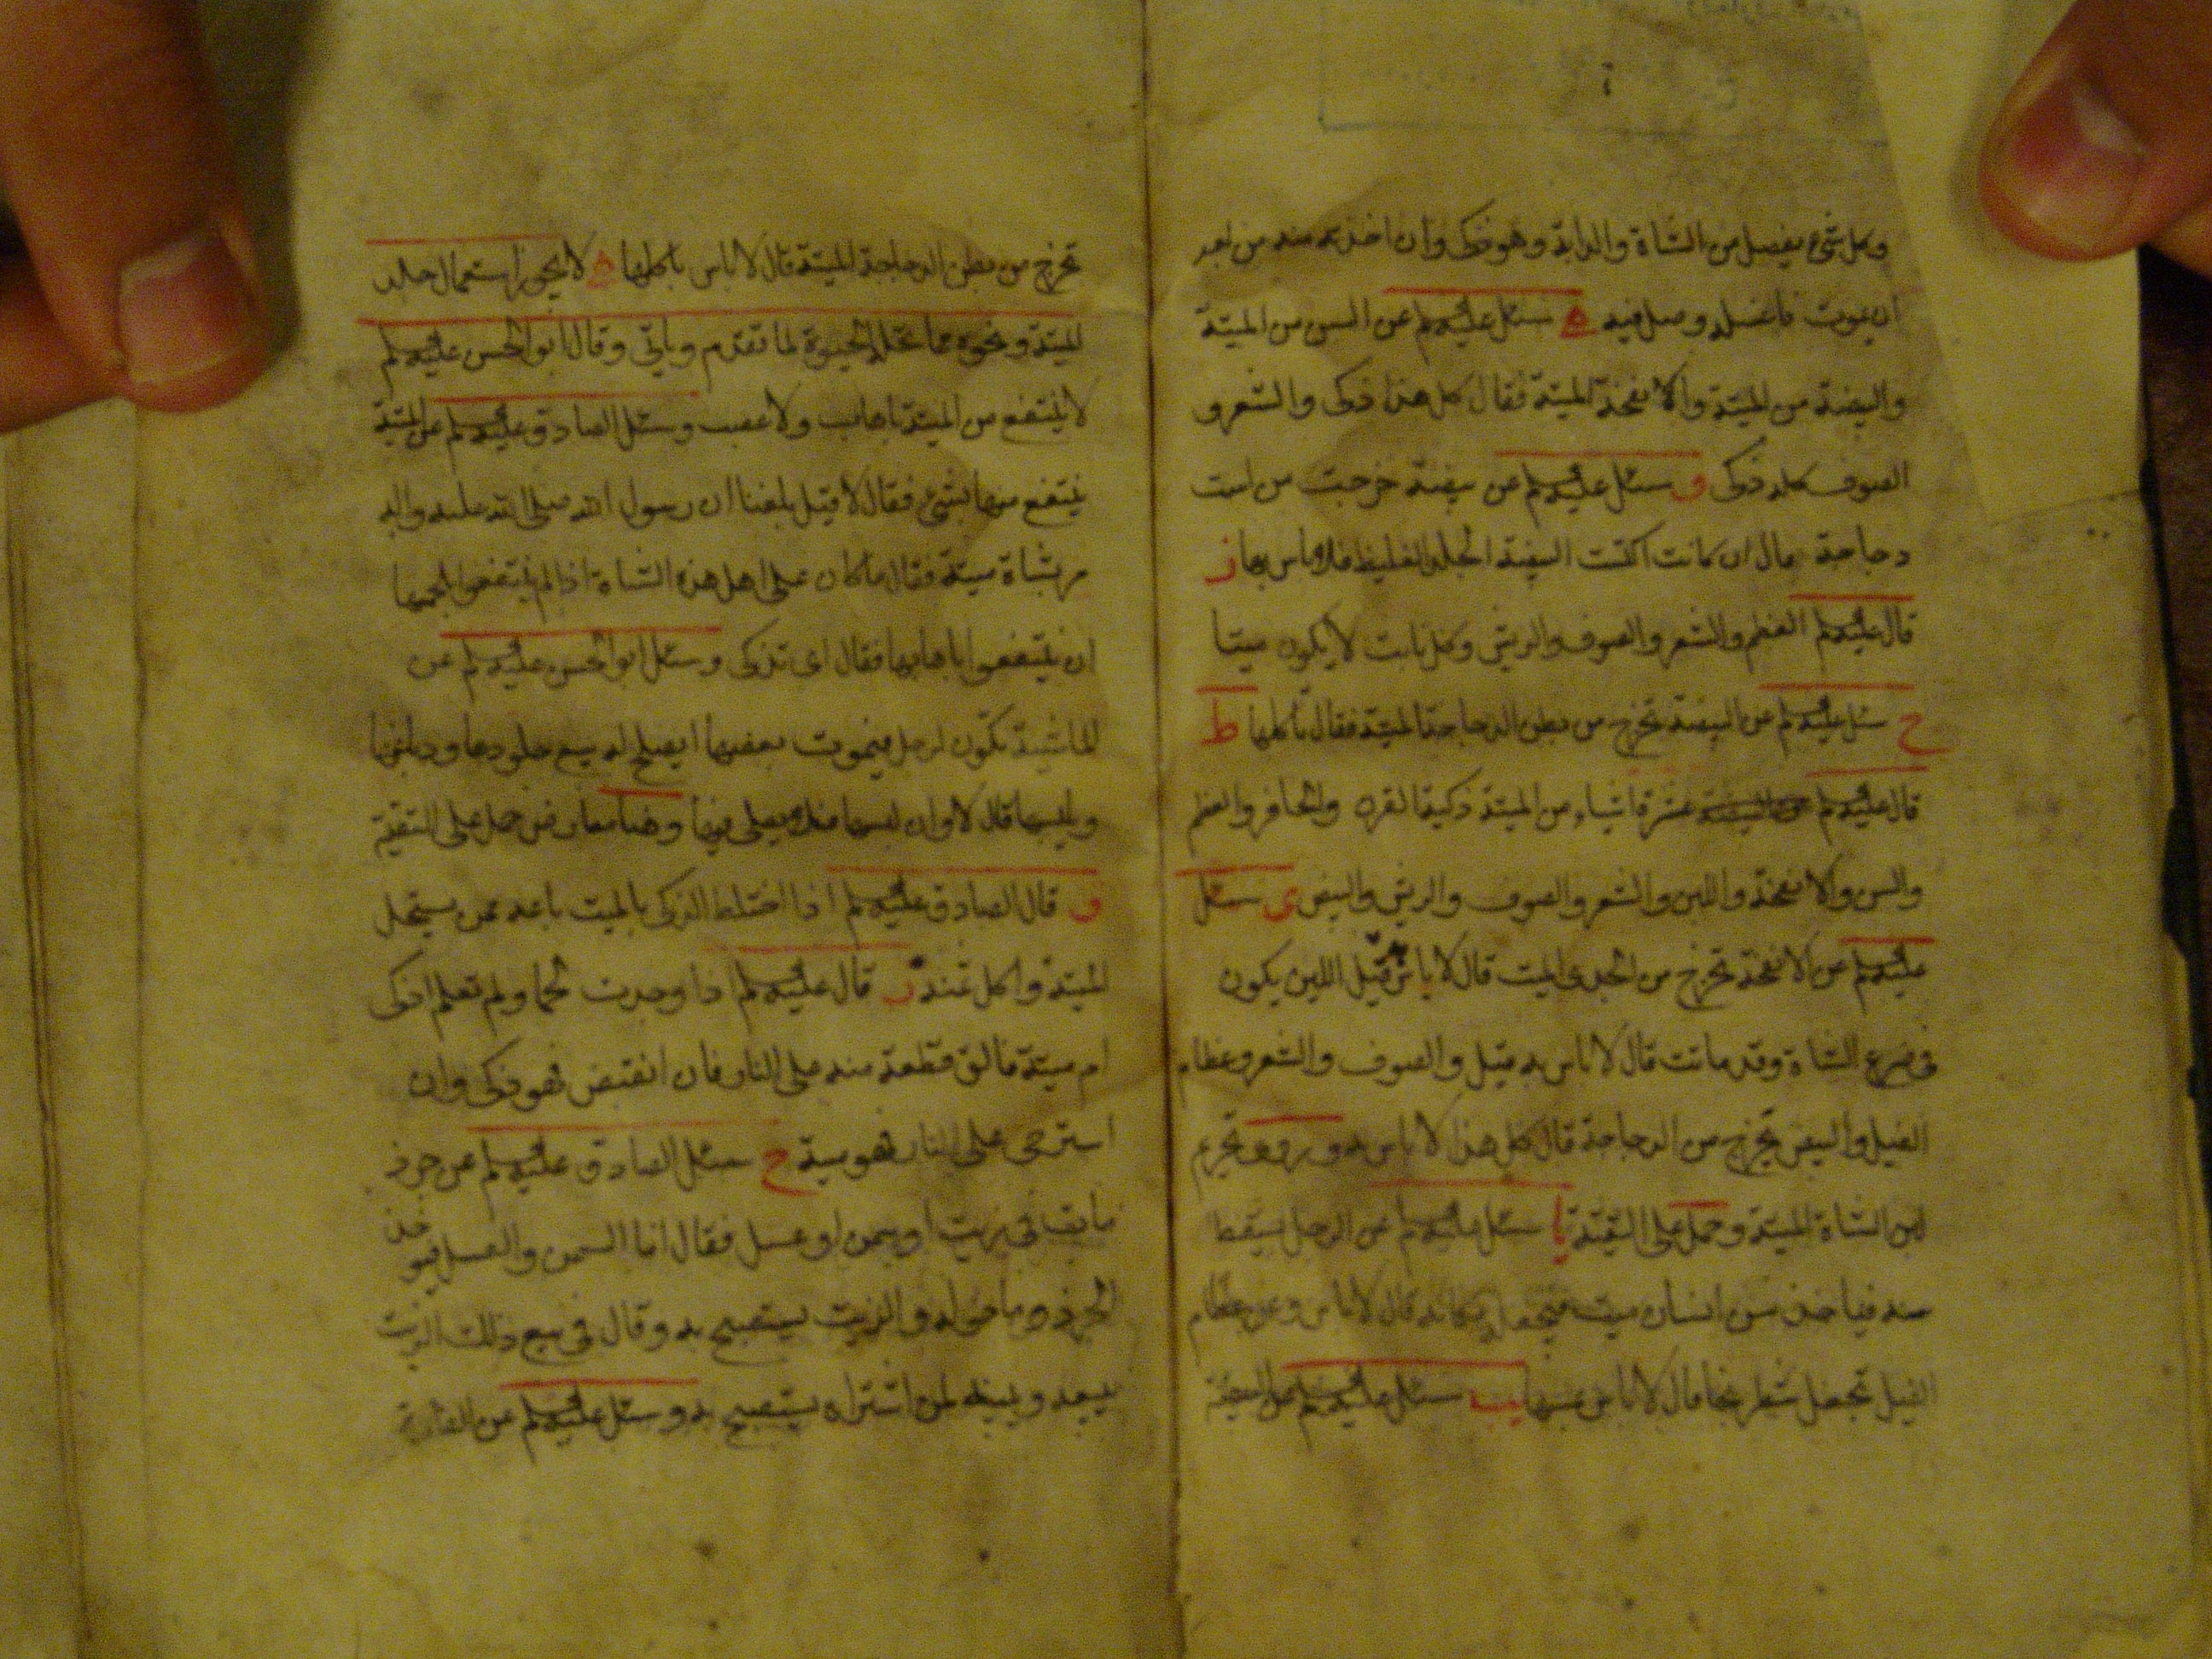 وكل شيء يفصل من الشاة والدابة وهو ذكي وان اخذته منه من بعد
ان يموت فاغسله وصل فيه ه سئل عليه لم عن السن من الميتة
والبيضة من الميتة والانفخة الميتة فقال كل هذا ذكى والشعر و
الصوف كله ذكى و سئل عليه لم عن بيضة خرجت من است
دجاجة قال ان كانت اكتست البيضة الجلد الغليظ فلا باس بها ز
قال عليه لم العظم والشعر والصوف والريش وكل نابت لا يكون ميتا
ح سئل عليه لم عن البيضة تخرج من بطن الدجاجة الميتة فقال تاكلها ط
قال عليه لم عشرة اشياء من الميتة ذكية القرن والحافر والعظم
والسن والانفخة واللبن والشعر والصوف والريش والبيض ى سئل
عليه لم عن الانفخة تخرج من الجدى الميت قال لا باس به قيل اللبن يكون
فى ضرع الشاة وقد ماتت قال لا باس به قيل والصوف والشعر وعظام
الفيل والبيض يخرج من الدجاجة قال كل هذا لا باس به وروى تحريم
لبن الشاة الميتة وحمل على التقية يا سئل عليه لم عن الرجل يسقط
سنه فياخذ سن انسان ميت فيجعله مكانه قال لا باس وعن عظام
الفيل تجعل شطرنجا قال لا باس بمسها يب سئل عليه لم عن البيضة
تخرج من بطن الدجاجة الميتة قال لا باس باكلها ه لا يجوز استعمال جلد
الميتة ونحوه مما تحله الحيوة لما تقدم وياتى وقال ابو الحسن عليه لم
لا ينتفع من الميتة باهاب ولا عصب وسئل الصادق عليه لم عن الميتة
ينتفع منها بشىء فقال لا قيل بلغنا ان رسول الله صلى الله عليه واله
مر بشاة ميتة فقال ما كان على اهل هذه الشاة اذا لم ينتفعوا بلحمها
ان ينتفعوا باهابها فقال اى تذكى وسئل ابو الحسن عليه لم عن
الماشية تكون لرجل فيموت بعضها ايصلح له بيع جلودها ودباغها
ويلبسها قال لا وان لبسها فلا يصلى فيها وهنا معارض حمل على التقية
و قال الصادق عليه لم اذا اختلط الذكى بالميت باعه ممن يستحل
الميتة واكل ثمنه ز قال عليه لم اذا وجدت لحما ولم تعلم اذكى
ام ميتة فالق قطعة منه على النار فان انقبض فهو ذكى وان
استرخى على النار فهو ميتة ح سئل الصادق عليه لم عن جرذ
مات فى زيت او سمن او عسل فقال اما السمن والعسل فيوخذ
الجرذ وما حوله والزيت يستصبح به وقال فى بيع ذلك الزيت
يبيعه ويبينه لمن اشتراه يستصبح به وسئل عليه لم عن الفارة